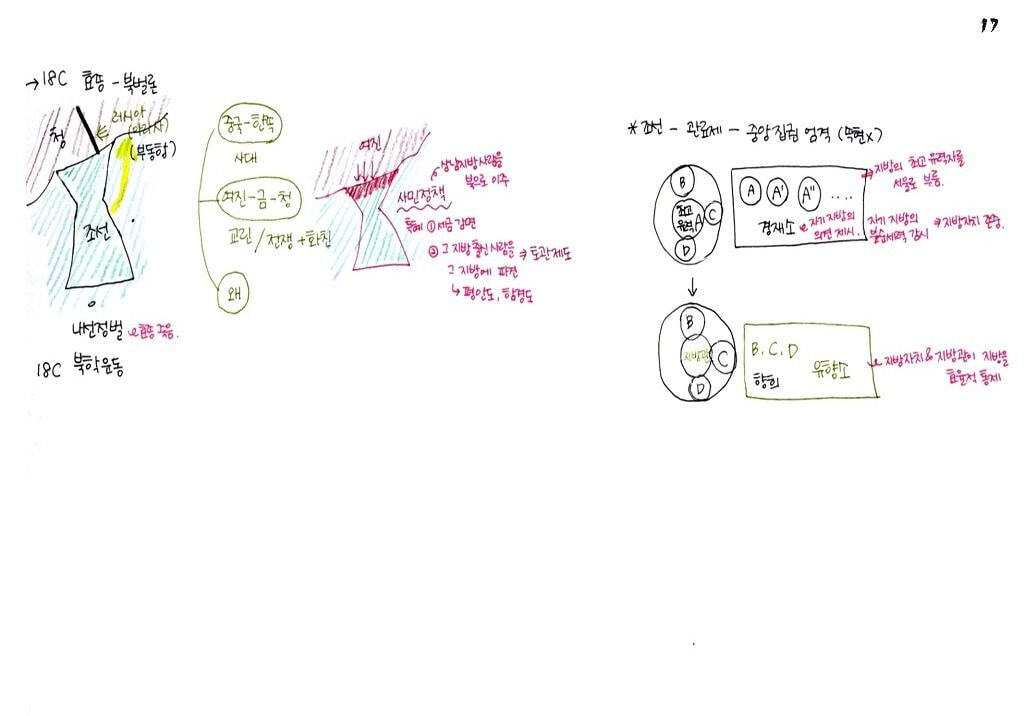 17
→18C 효종 - 북벌론
청
러시아
(부동항)
조선
나선정벌 효종 죽음.
18C 북학운동
중국-한족
사대
여진-금-청
교린/전쟁+화친
왜
여진
삼남지방사람을
북으로 이주
사민정책
특혜 ① 세금 감면
② 그 지방 출신 사람을 → 토관제도
그 지방에 파견
↳ 평안도, 함경도
*조선 - 관료제 - 중앙집권 엄격 (속현X)
B
최고
유력 A
C
D
A A' A" ....
경재소
지방의 최고 유력자를
서울로 부름.
자기 지방의
의견 제시.
자기 지방의
불순세력 감시
→지방자치 존중.
B
지방관
C
D
B. C. D
향회 유향소
지방자치 & 지방관이 지방을
효율적 통제